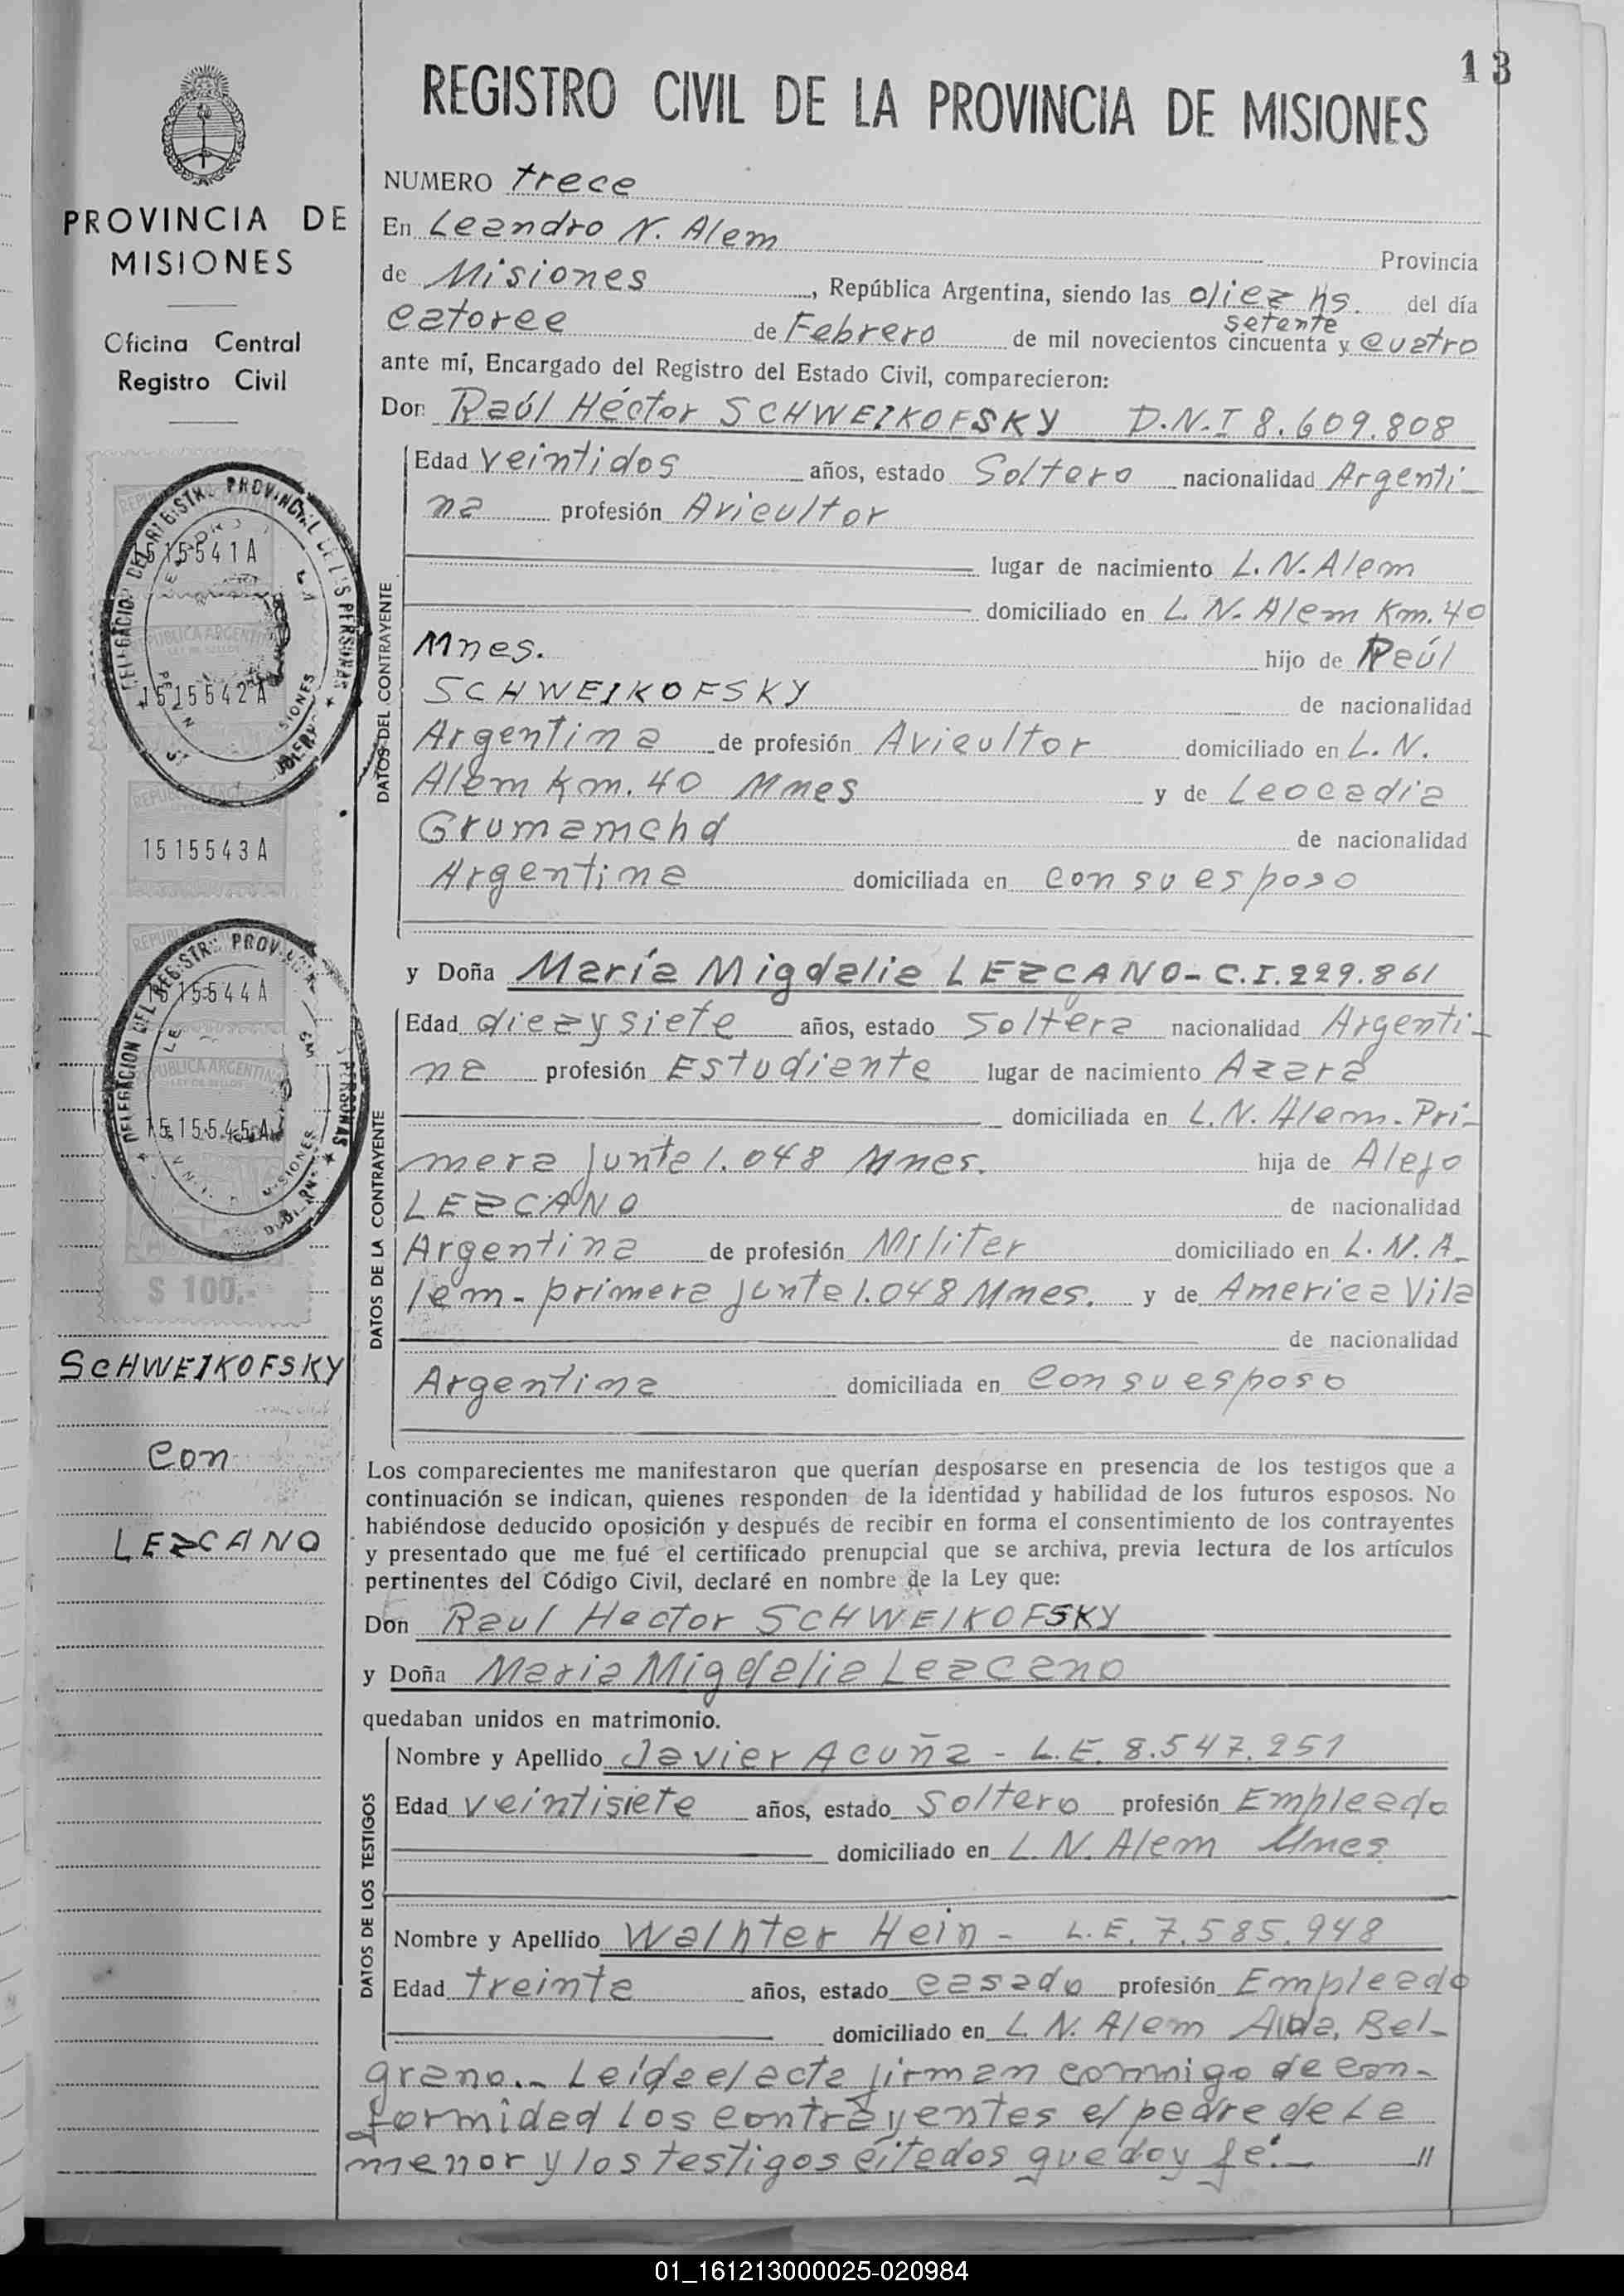 13
REGISTRO CIVIL DE LA PROVINCIA DE MISIONES
PROVINCIA DE
MISIONES
Oficina Central
Registro Civil
1515541A
1515542A
1515543A
1515544A
1515545A
$ 100.-
SCHWEIKOFSKY
Con
LEZCANO
NUMERO trece
En Leandro N. Alem Provincia
de Misiones, República Argentina, siendo las diez hs. del día
catorce de Febrero de mil novecientos cincuenta setenta y cuatro
ante mí, Encargado del Registro del Estado Civil, comparecieron:
Don Raúl Héctor SCHWEIKOFSKY D.N.I 8.609.808
DATOS DEL CONTRAYENTE
Edad veintidos años, estado Soltero nacionalidad Argenti-
na profesión Avicultor
lugar de nacimiento L.N. Alem
domiciliado en L. N. Alem Km. 40
Mnes. hijo de Raúl
SCHWEIKOFSKY de nacionalidad
Argentina de profesión Avicultor domiciliado en L. N.
Alem Km. 40 Mnes y de Leocadia
de nacionalidad
Argentina domiciliada en con su esposo
y Doña María Migdalia LEZCANO - C.I. 229.861
DATOS DE LA CONTRAYENTE
Edad diez y siete años, estado Soltera nacionalidad Argenti-
na profesión Estudiante lugar de nacimiento Azara
domiciliada en L. N. Alem - Pri-
mera Junta 1.048 Mnes. hija de Alejo
LEZCANO de nacionalidad
Argentina de profesión Militar domiciliado en L. N. A-
lem - primera Junta 1.048 Mnes. y de America Vila
de nacionalidad
Argentina domiciliada en con su esposo
Los comparecientes me manifestaron que querían desposarse en presencia de los testigos que a
continuación se indican, quienes responden de la identidad y habilidad de los futuros esposos. No
habiéndose deducido oposición y después de recibir en forma el consentimiento de los contrayentes
y presentado que me fué el certificado prenupcial que se archiva, previa lectura de los artículos
pertinentes del Código Civil, declaré en nombre de la Ley que:
Don Raul Hector SCHWEIKOFSKY
y Doña Maria Migdalia Lezcano
quedaban unidos en matrimonio.
DATOS DE LOS TESTIGOS
Nombre y Apellido Javier Acuña - L.E. 8.547.251
Edad veintisiete años, estado Soltero profesión Empleado
domiciliado en L. N. Alem Mnes
Nombre y Apellido Walhter Hein - L.E. 7.585.948
Edad treinta años, estado casado profesión Empleado
domiciliado en L. N. Alem Avda. Bel-
grano.- Leída el acta firman conmigo de con-
formidad los contrayentes el padre de La
menor y los testigos citados que doy fé.- //
01_161213000025-020984